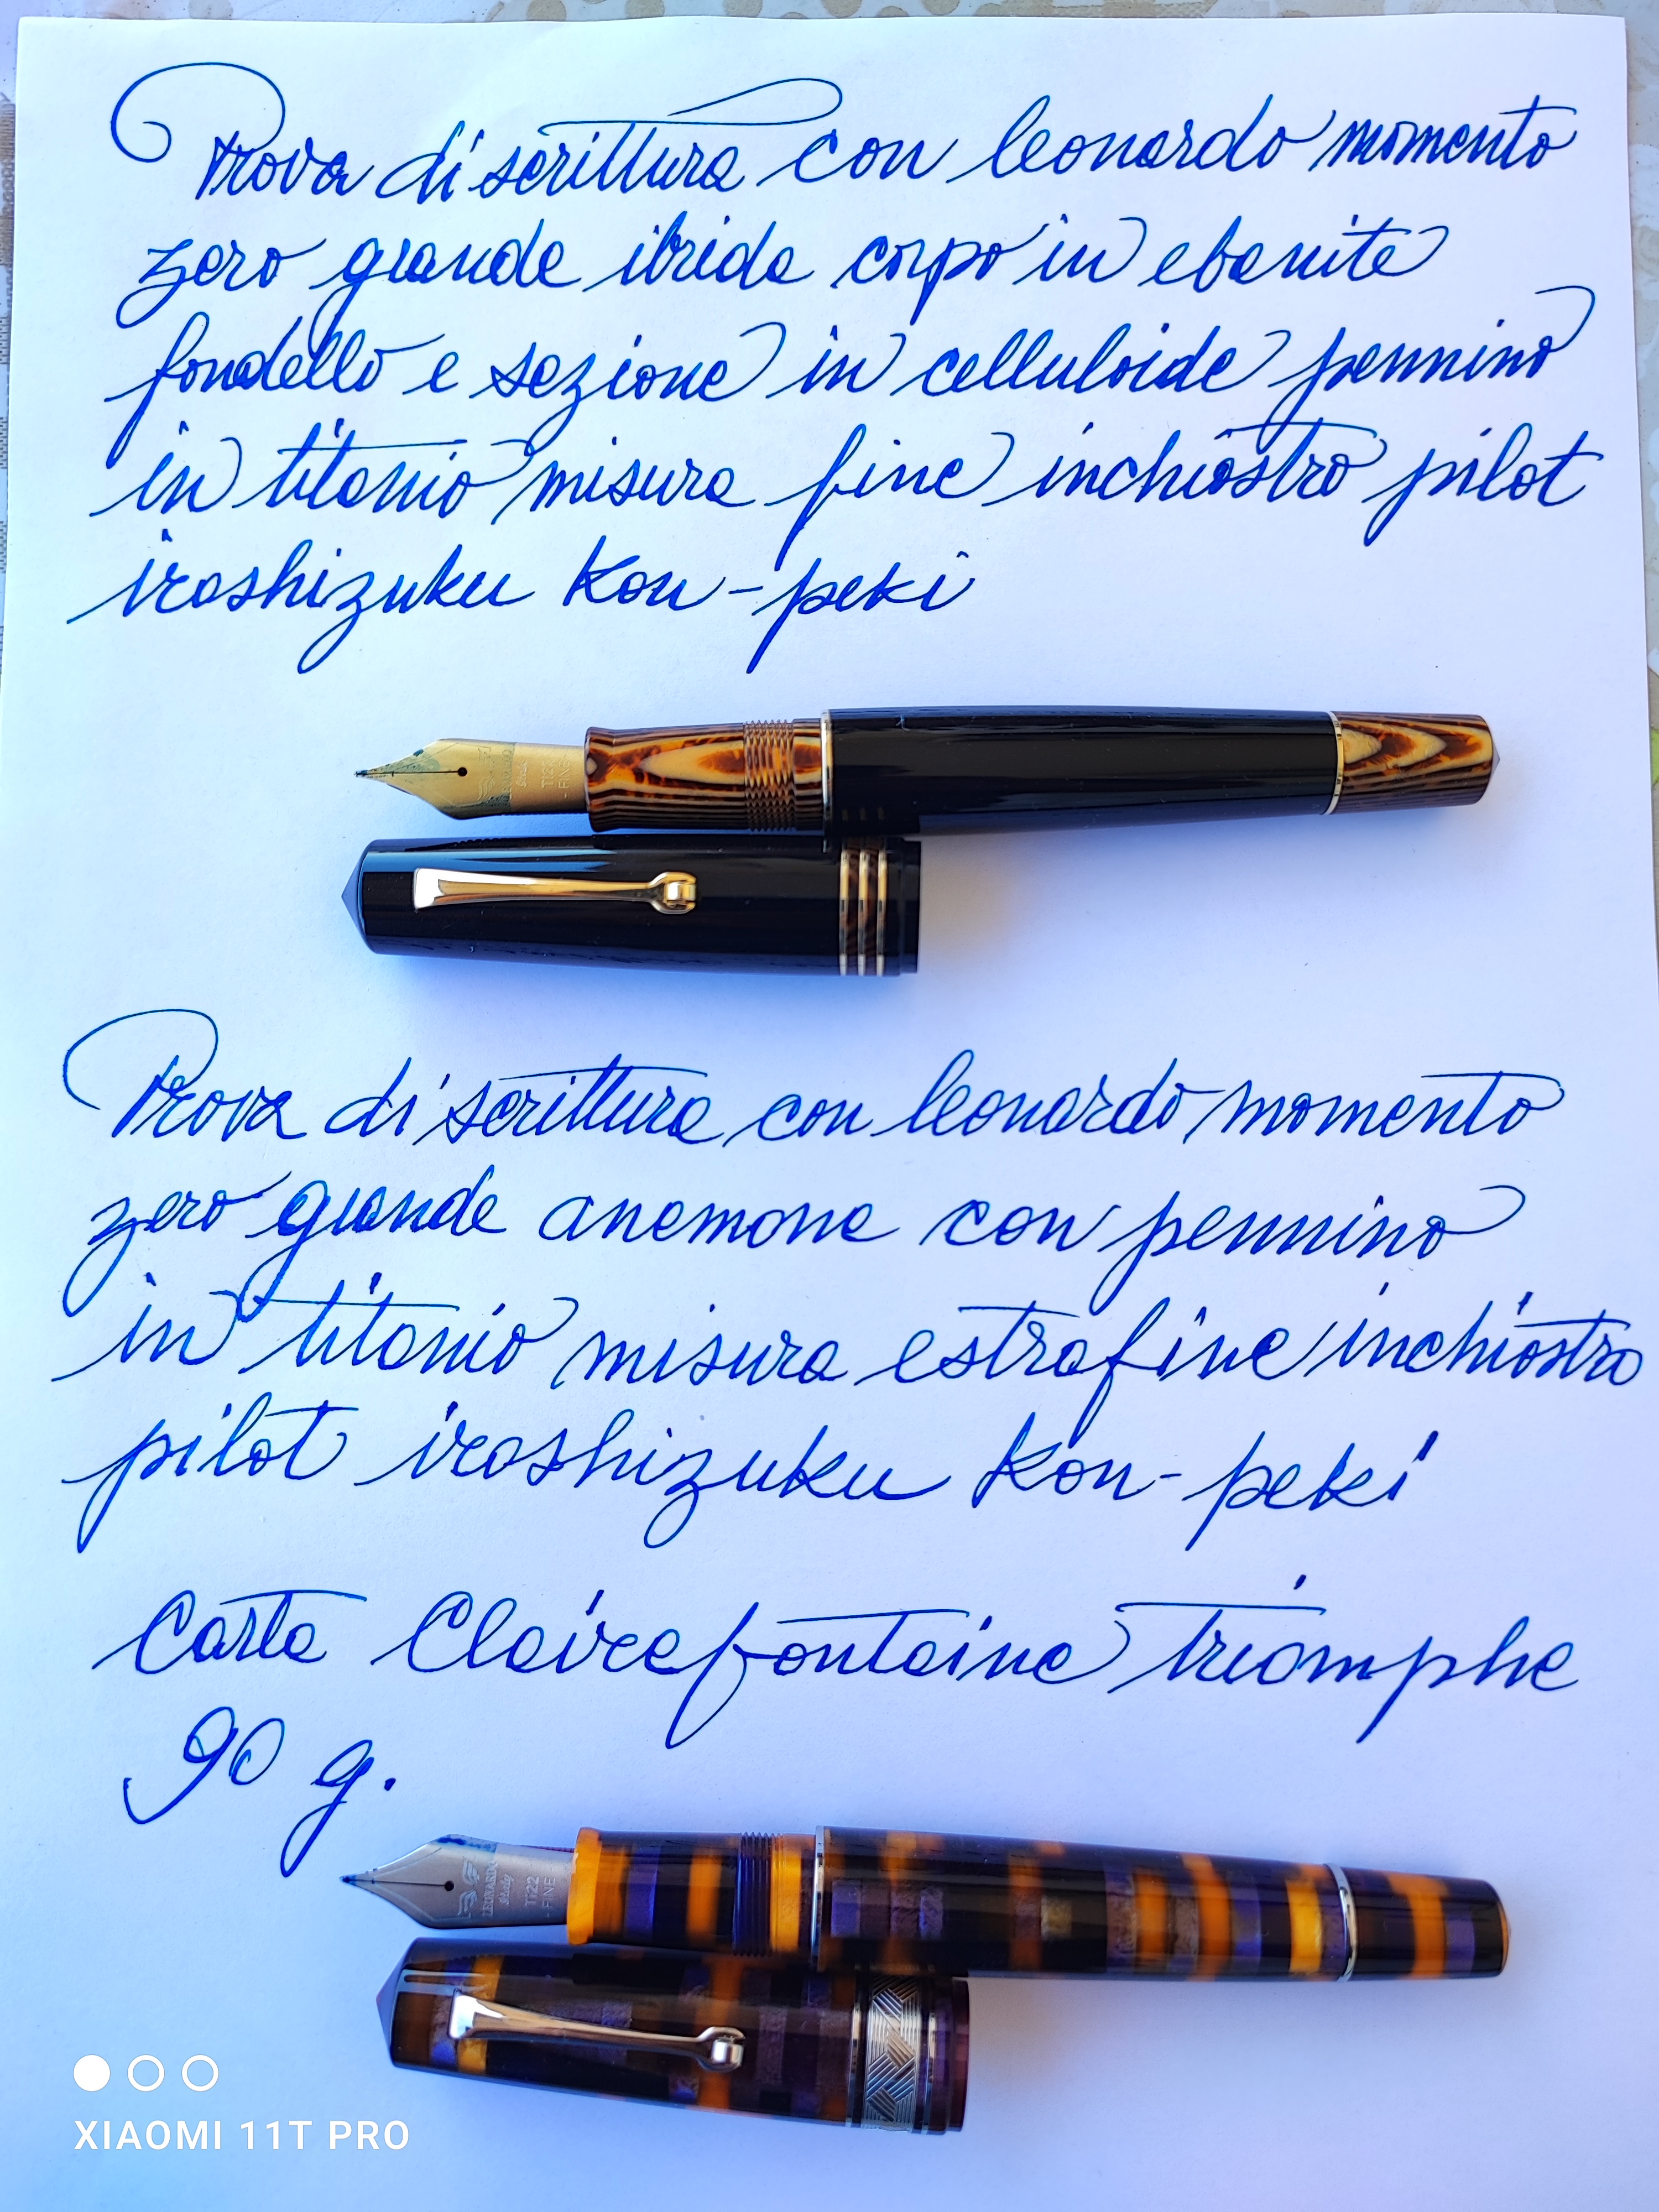 Prova di scrittura con leonardo momento
zero grande ibrida corpo in ebanite
fondello e sezione in celluloide pennino
in titanio misura fine inchiostro pilot
iroshizuku Kon-peki
TI22
-FINE-
Prova di scrittura con leonardo momento
zero grande anemone con pennino
in titanio misura estrafine inchiostro
pilot iroshizuku Kon-peki
Carta Clairefontaine triomphe
90 g.
LEONARDO
Italy
TI22
-FINE-
XIAOMI 11T PRO